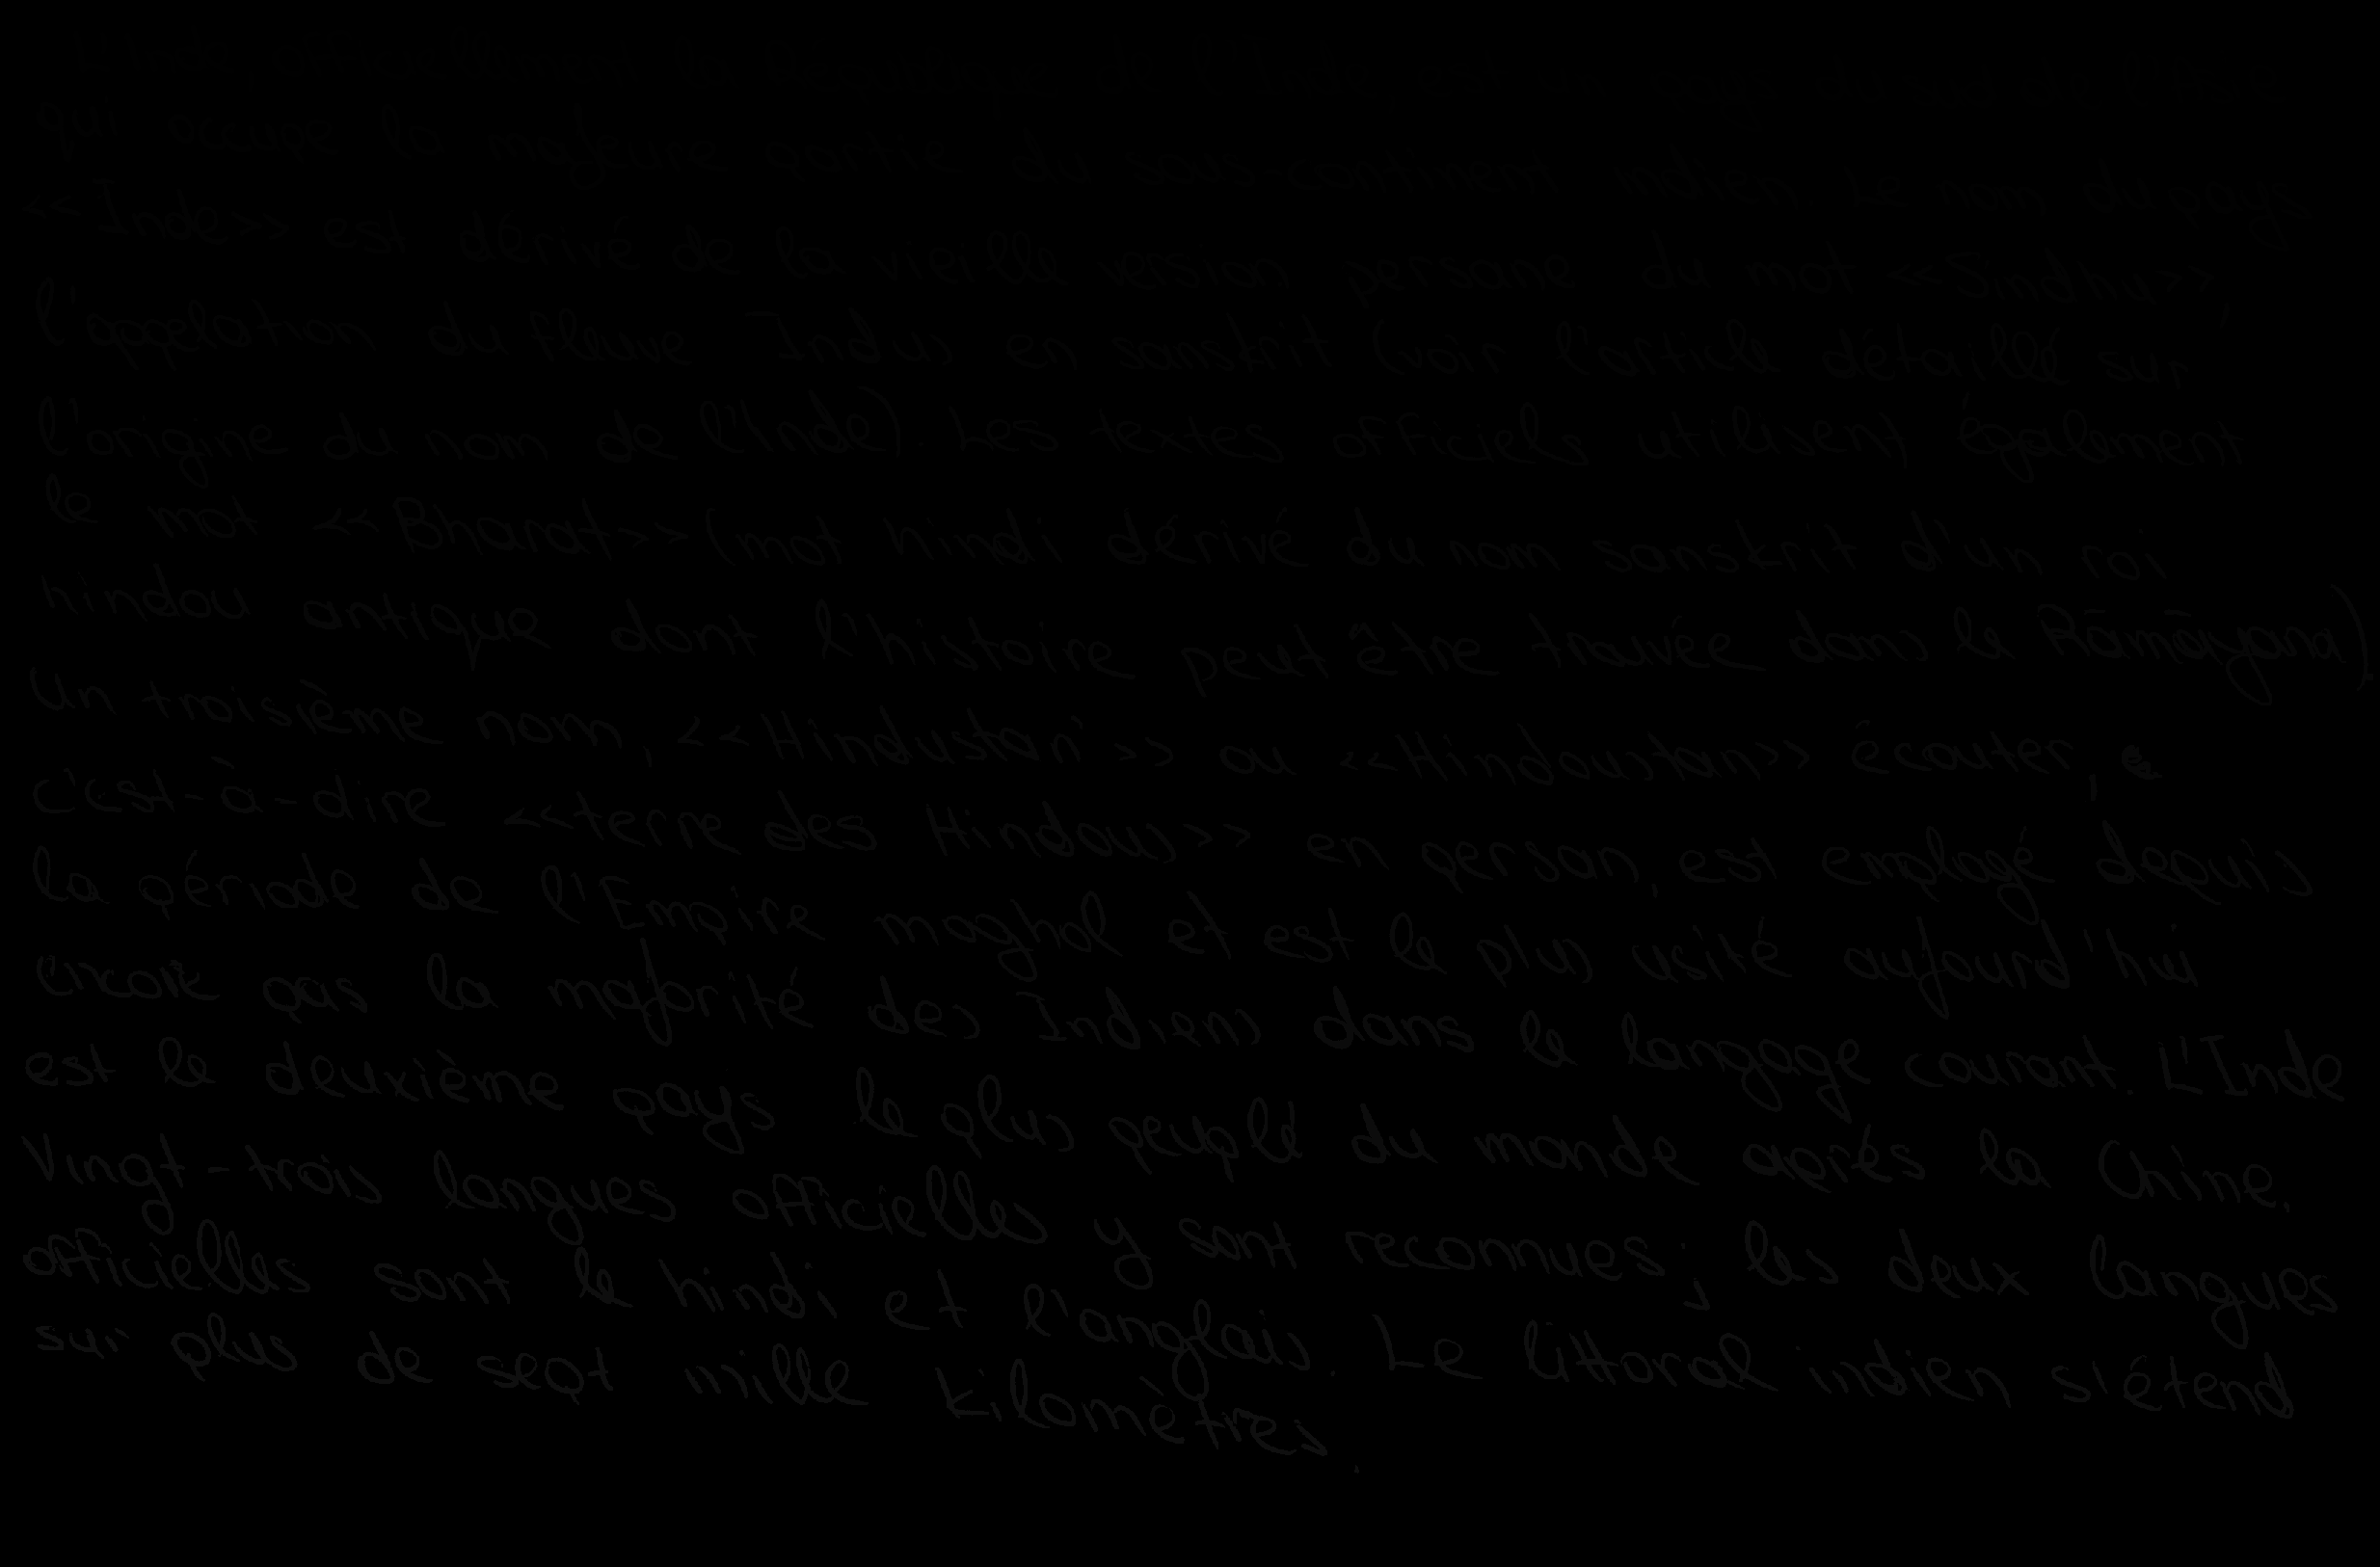 qui occupe la majeure partie du sous-continent indien. Le nom du pays
<<Inde>> est dérivé de la vieille version persane du mot <<Sindhu>>,
l'appelation du fleuve Indus en sanskrit (voir l'article détaillé sur
l'origine du nom de l'Inde). Les textes officiels utilisent également
le mot <<Bharat>> (mot hindi dérivé du nom sanskrit d'un roi
hindou antique dont l'histoire peut être trouvée dans le Rāmāyana).
Un troisième nom, <<Hindustān>> ou <<Hindoustan>> écouter,
C'est-à-dire <<terre des Hindous>> en persan, est employé depuis
la période de l'Empire moghol et est le plus usité aujourd'hui
encore par la majorité des Indiens dans le langage courant. L'Inde
est le deuxième pays le plus peuplé du monde après la Chine.
Vingt-trois langues officielles y sont reconnues; les deux langues
officielles sont le hindi et l'anglais. Le littoral indien s'étend
sur plus de sept mille kilomètres.